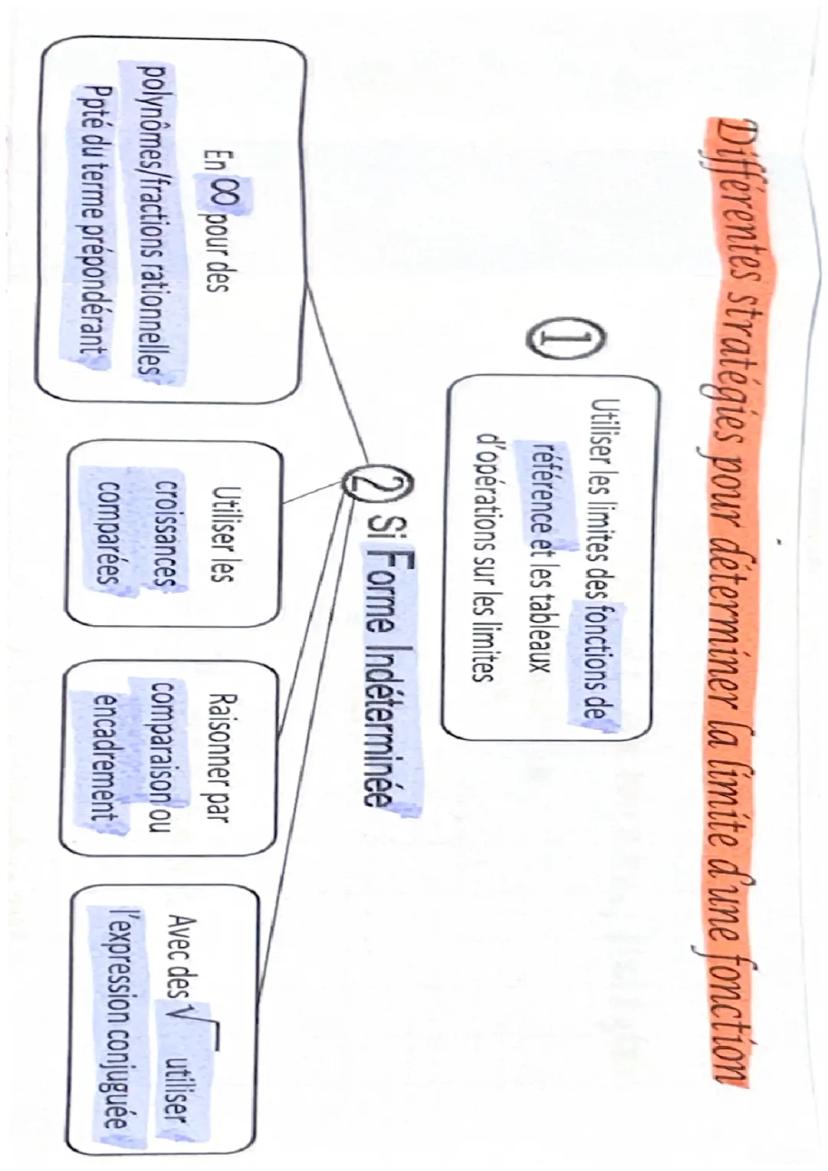 Différentes stratégies pour déterminer la limite d'une fonction
①
Utiliser les limites des fonctions de
référence et les tableaux
d'opérations sur les limites
② Si Forme Indéterminée
En ∞ pour des
polynômes/fractions rationnelles
Ppté du terme prépondérant
Utiliser les
croissances
comparées
Raisonner par
comparaison ou
encadrement
Avec des √ utiliser
l'expression conjuguée